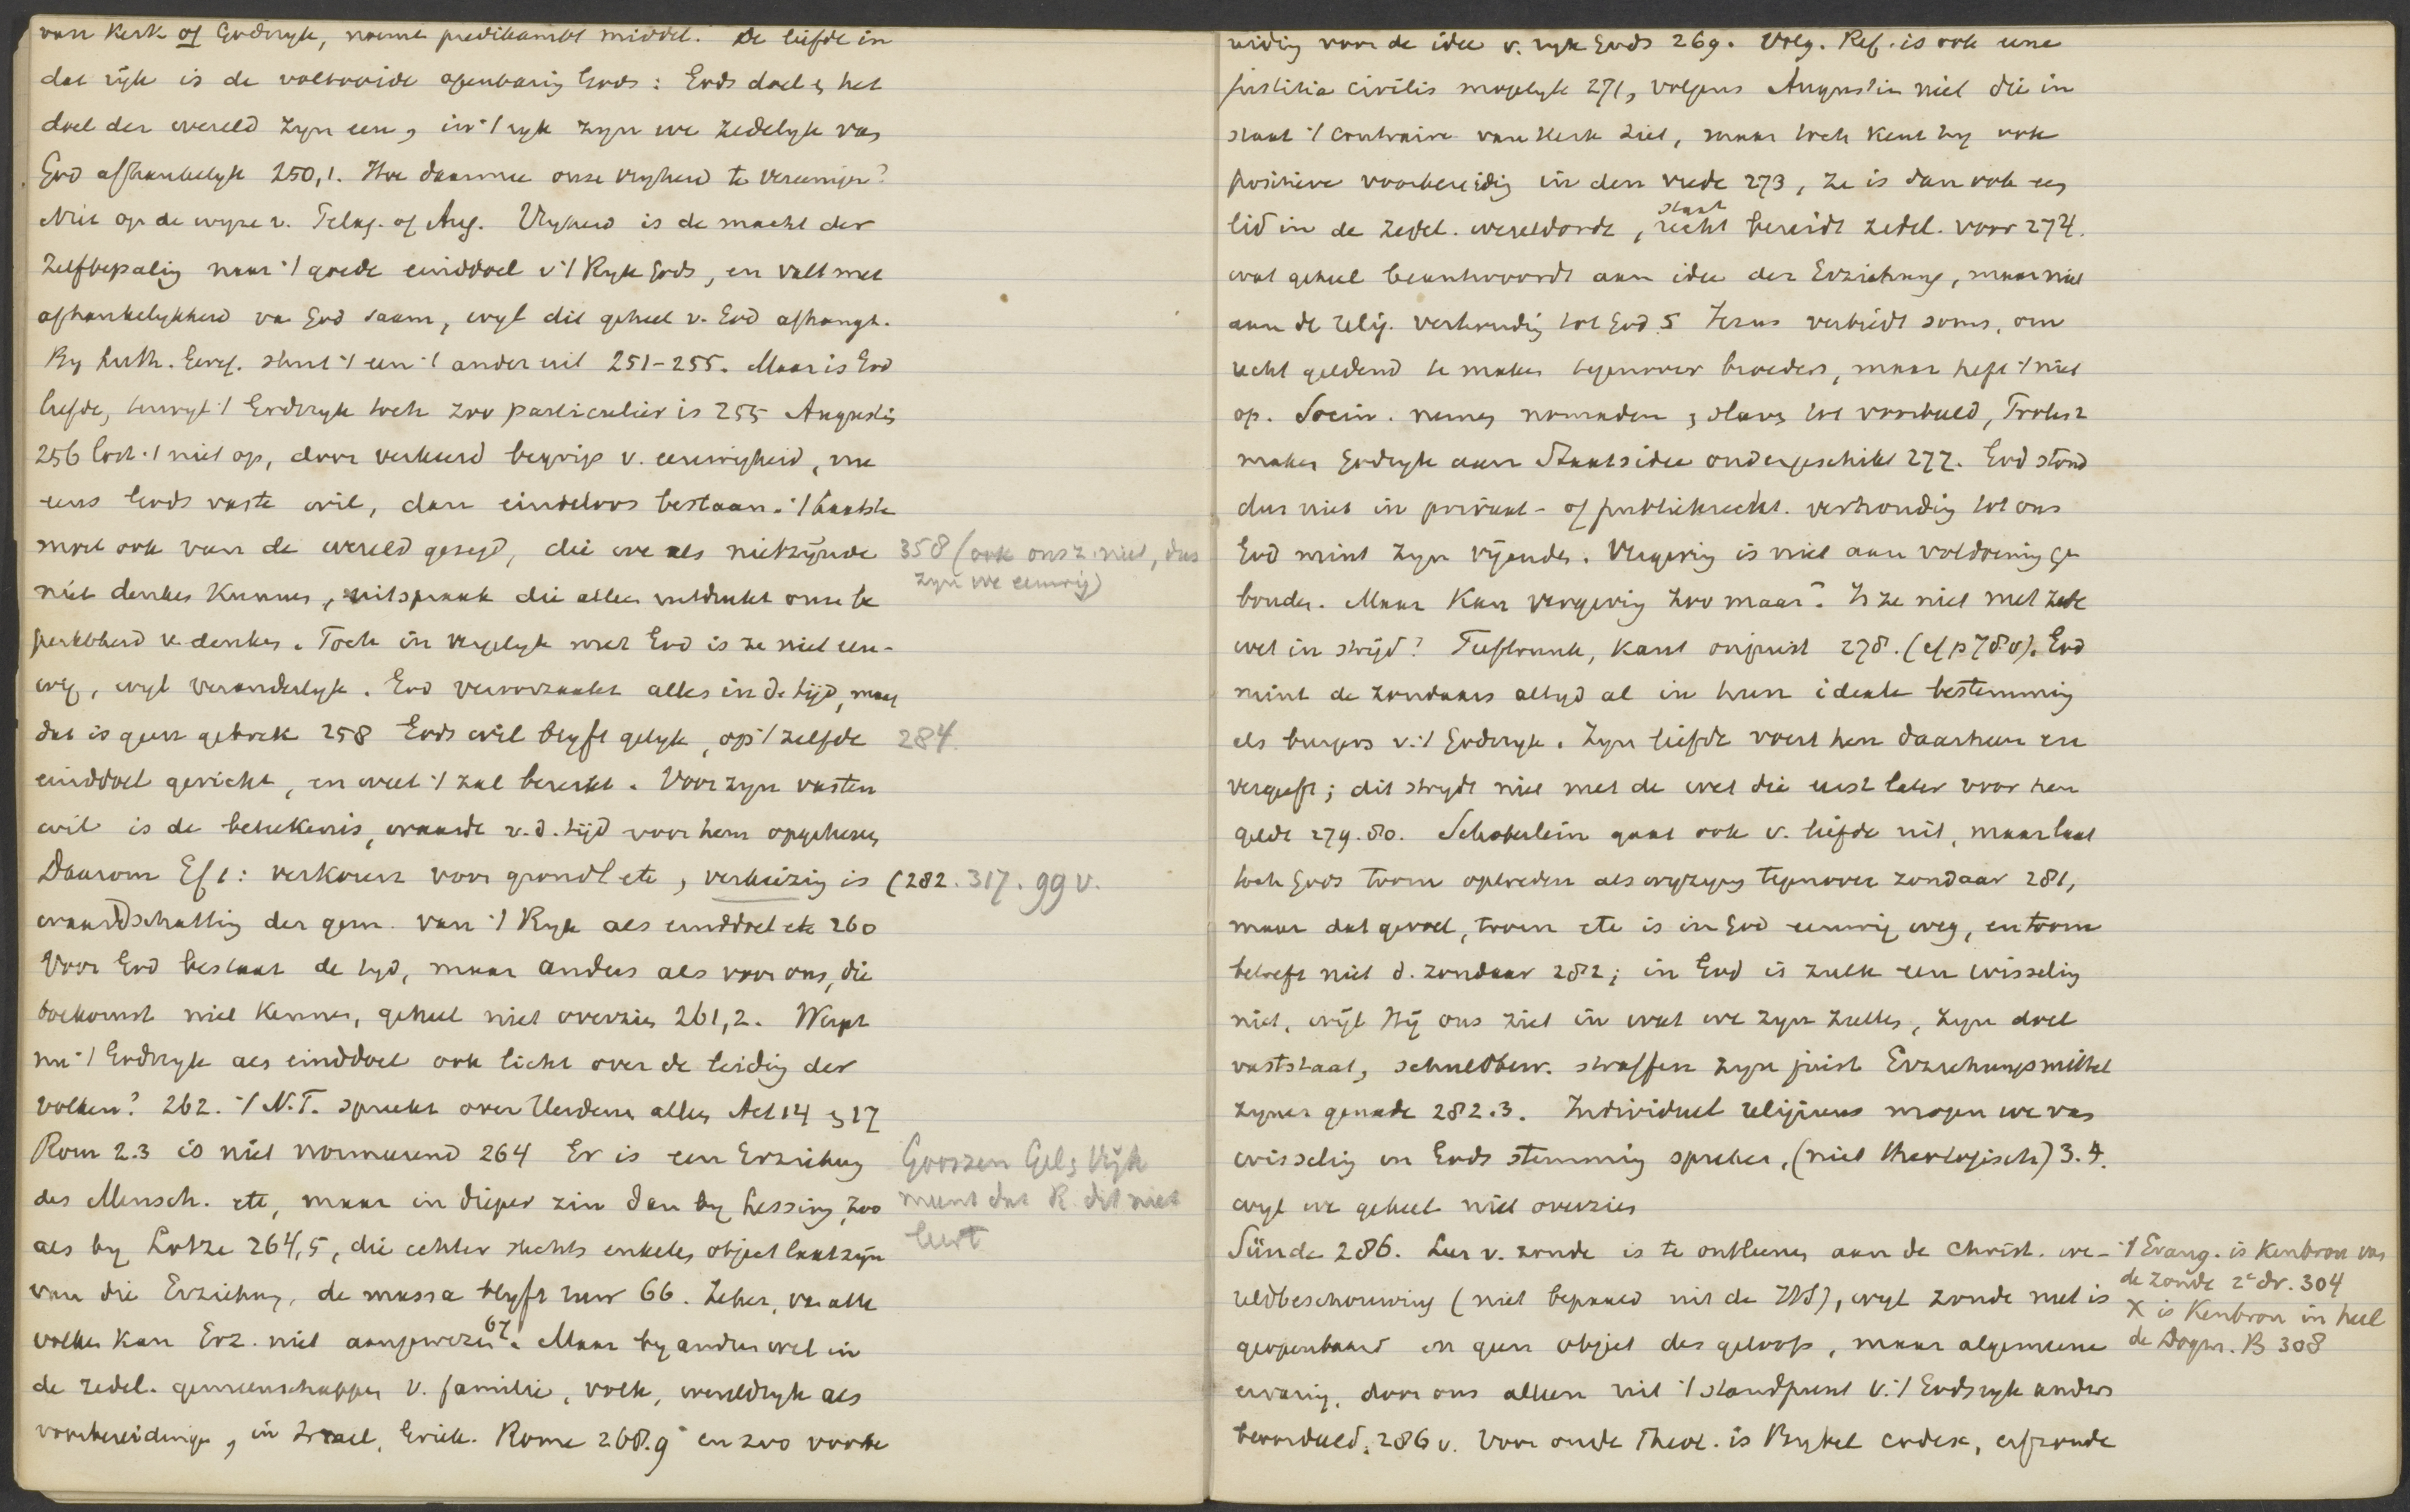 van Kerk of Godsryk, noemt predikambt middel. De liefde in
dat ryk is de voltooide openbaring Gods: Gods doel & het
doel der wereld zyn een, in 't ryk zyn we zedelyk van
God afhankelyk 250,1. Hoe daarmee onze vryheid te vereenigen?
Niet op de wyze v. Pelag. of Aug. Vryheid is de macht der
zelfbepaling naar 't goede einddoel v 't Ryk Gods, en valt met
afhankelykheid van God saam, wyl dit geheel v. God afhangt.
By Luth. Geref. sluit 't een 't ander uit 251-255. Maar is God
liefde, terwyl 't Godsryk toch zoo particulier is 255 Augustin
256 lost 't niet op, door verkeerd begrip v. eeuwigheid, nu
eens Gods vaste wil, dan eindeloos bestaan. 't laatste
moet ook van de wereld gezegd, die we als nietzynde
niet denken kunnen, uitspraak die alleen uitdrukt onze be
perktheid v. denken. Toch in vergelyk met God is ze niet eeu-
wig, wyl veranderlyk. God veroorzaakt alles in de tijd, maar
dat is geen gebrek 258 Gods wil blyft gelyk, op 't zelfde
einddoel gericht, en weet 't zal bereikt. Voor zyn vasten
wil is de beteekenis, waarde v. d. tijd voor hem opgeheven
Daarom Ef 1: verkoren voor grondl etc, verkiezing is
waardschatting der gem. van 't Ryk als einddoel etc 260
Voor God bestaat de tyd, maar anders als voor ons, die
toekomst niet kennen, geheel niet overzien 261,2. Werpt
nu 't Godsryk als einddoel ook licht over de leiding der
volken? 262. 't N.T. spreekt over Heidenen alleen Act 14 & 17
Rom 2.3 is niet normeerend 264 Er is een Erziehung
des Mensch. etc, maar in dieper zin dan by Lessing, zoo
als by Lotze 264,5, die echter slechts enkelen object laat zyn
van die Erziehung, de massa blyft ruw 66. Zeker, van alle
volken kan Erz. niet aangewezen 67. Maar by andren wel in
de zedel. gemeenschappen v. familie, volk, wereldryk als
voorbereidingen, in Israel, Griek. Rome 268.9 en zoo voorbe
358 (ook ons z. niet, dus
zyn we eeuwig)
284.
(282. 317. 99 v.
Goossen Gel & Vijh
meent dat R. dit niet
leert
reiding voor de idee v. ryk Gods 269. Volg. Ref. is ook eene
justitia civilis mogelyk 271, volgens Augustin niet die in
staat 't contraire van Kerk ziet, maar toch kent hy ook
positieve voorbereiding in den vrede 273, ze is dan ook een
lid in de zedel. wereldorde, staat recht bereidt zedel. voor 274.
wat geheel beantwoordt aan idee der Erziehung, maar niet
aan de relig. verhouding tot God 5 Jezus verbiedt soms, om
recht geldend te maken tegenover broeders, maar heft 't niet
op. Socin. nemen nomaden & slaven tot voorbeeld, Protest
maken Godsryk aan Staatsidee ondergeschikt 277. God stond
dus niet in privaat- of publiekrecht. verhouding tot ons
God mint zyn vijanden. Vergeving is niet aan voldoening ge
bonden. Maar kan vergeving zoo maar? Is ze niet met zede
wet in strijd? Tieftrunk, Kant onjuist 278. (cf p 78.0). God
mint de zondaars altyd al in hun ideale bestemming
als burgers v. 't Godsryk. Zyn liefde voert hen daarheen en
vergeeft; dit strydt niet met de wet die eerst later voor hen
geldt 279.80. Schoberlein gaat ook v. liefde uit, maar laat
toch Gods toorn optreden als wyziging tegenover zondaar 281,
maar dat gevoel, toorn etc is in God eeuwig weg, en toorn
betreft niet d. zondaar 282; in God is zulk een wisseling
niet, wijl Hij ons ziet in wat we zyn zullen, zyn doel
vaststaat, schuldbew. straffen zyn juist Erziehungsmittel
zyner genade 282.3. Individueel religieus mogen we van
wisseling in Gods stemming spreken, (niet theologisch) 3.4.
wyl we geheel niet overzien
Sünde 286. Leer v. zonde is te ontleenen aan de christ. we-
reldbeschouwing (niet bepaald uit de HS), wyl zonde niet is
geopenbaard en geen object des geloofs, maar algemeene
ervaring, door ons alleen uit 't standpunt v. 't Godsryk anders
beoordeeld, 286 v. Voor oude Theol. is Bybel codex, erfzonde
't Evang. is Kenbron van
de zonde 2e dr. 304
X is Kenbron in heel
de Dogm. B 308